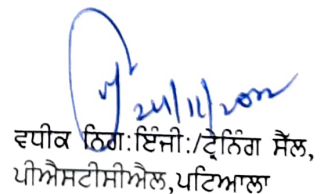 24/11/2022
ਵਧੀਕ ਨਿਗ:ਇੰਜੀ:/ਟ੍ਰੇਨਿੰਗ ਸੈੱਲ,
ਪੀਐਸਟੀਸੀਐਲ,ਪਟਿਆਲਾ